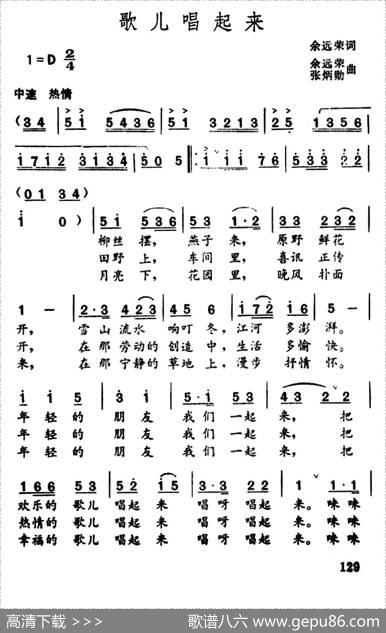 歌儿唱起来
1=D 2/4
余远荣词
余远荣
张炳勋 曲
中速 热情
(34 | 51 5643 | 51 3213 | 25
1712 3134 | 505 | : 11 76 | 533 22 |
(01 34)
1 0) | 51 536 | 53 1·2 | 33 232 |
柳丝摆, 燕子来, 原野鲜花
田野上, 车间里, 喜讯正传
月亮下, 花园里, 晚风扑面
1 - | 2·3 423 | 45 6 | 72 1·6 | 5 - |
开, 雪山流水响叮冬, 江河多澎湃。
开, 在那劳动的创造中, 生活多愉快。
来, 在那宁静的草地上, 漫步抒情怀。
1 1 5 | 3 1 | 5·1 53 | 43 2 2 |
年轻的朋友我们一起来, 把
年轻的朋友我们一起来, 把
年轻的朋友我们一起来, 把
166 53 | 52 15 | 3·3 22 | 1 · 11 |
欢乐的歌儿唱起来唱呀唱起来。咪咪
热情的歌儿唱起来唱呀唱起来。咪咪
幸福的歌儿唱起来唱呀唱起来。咪咪
129
高清下载 >>>
歌谱八六 www.gepu86.com